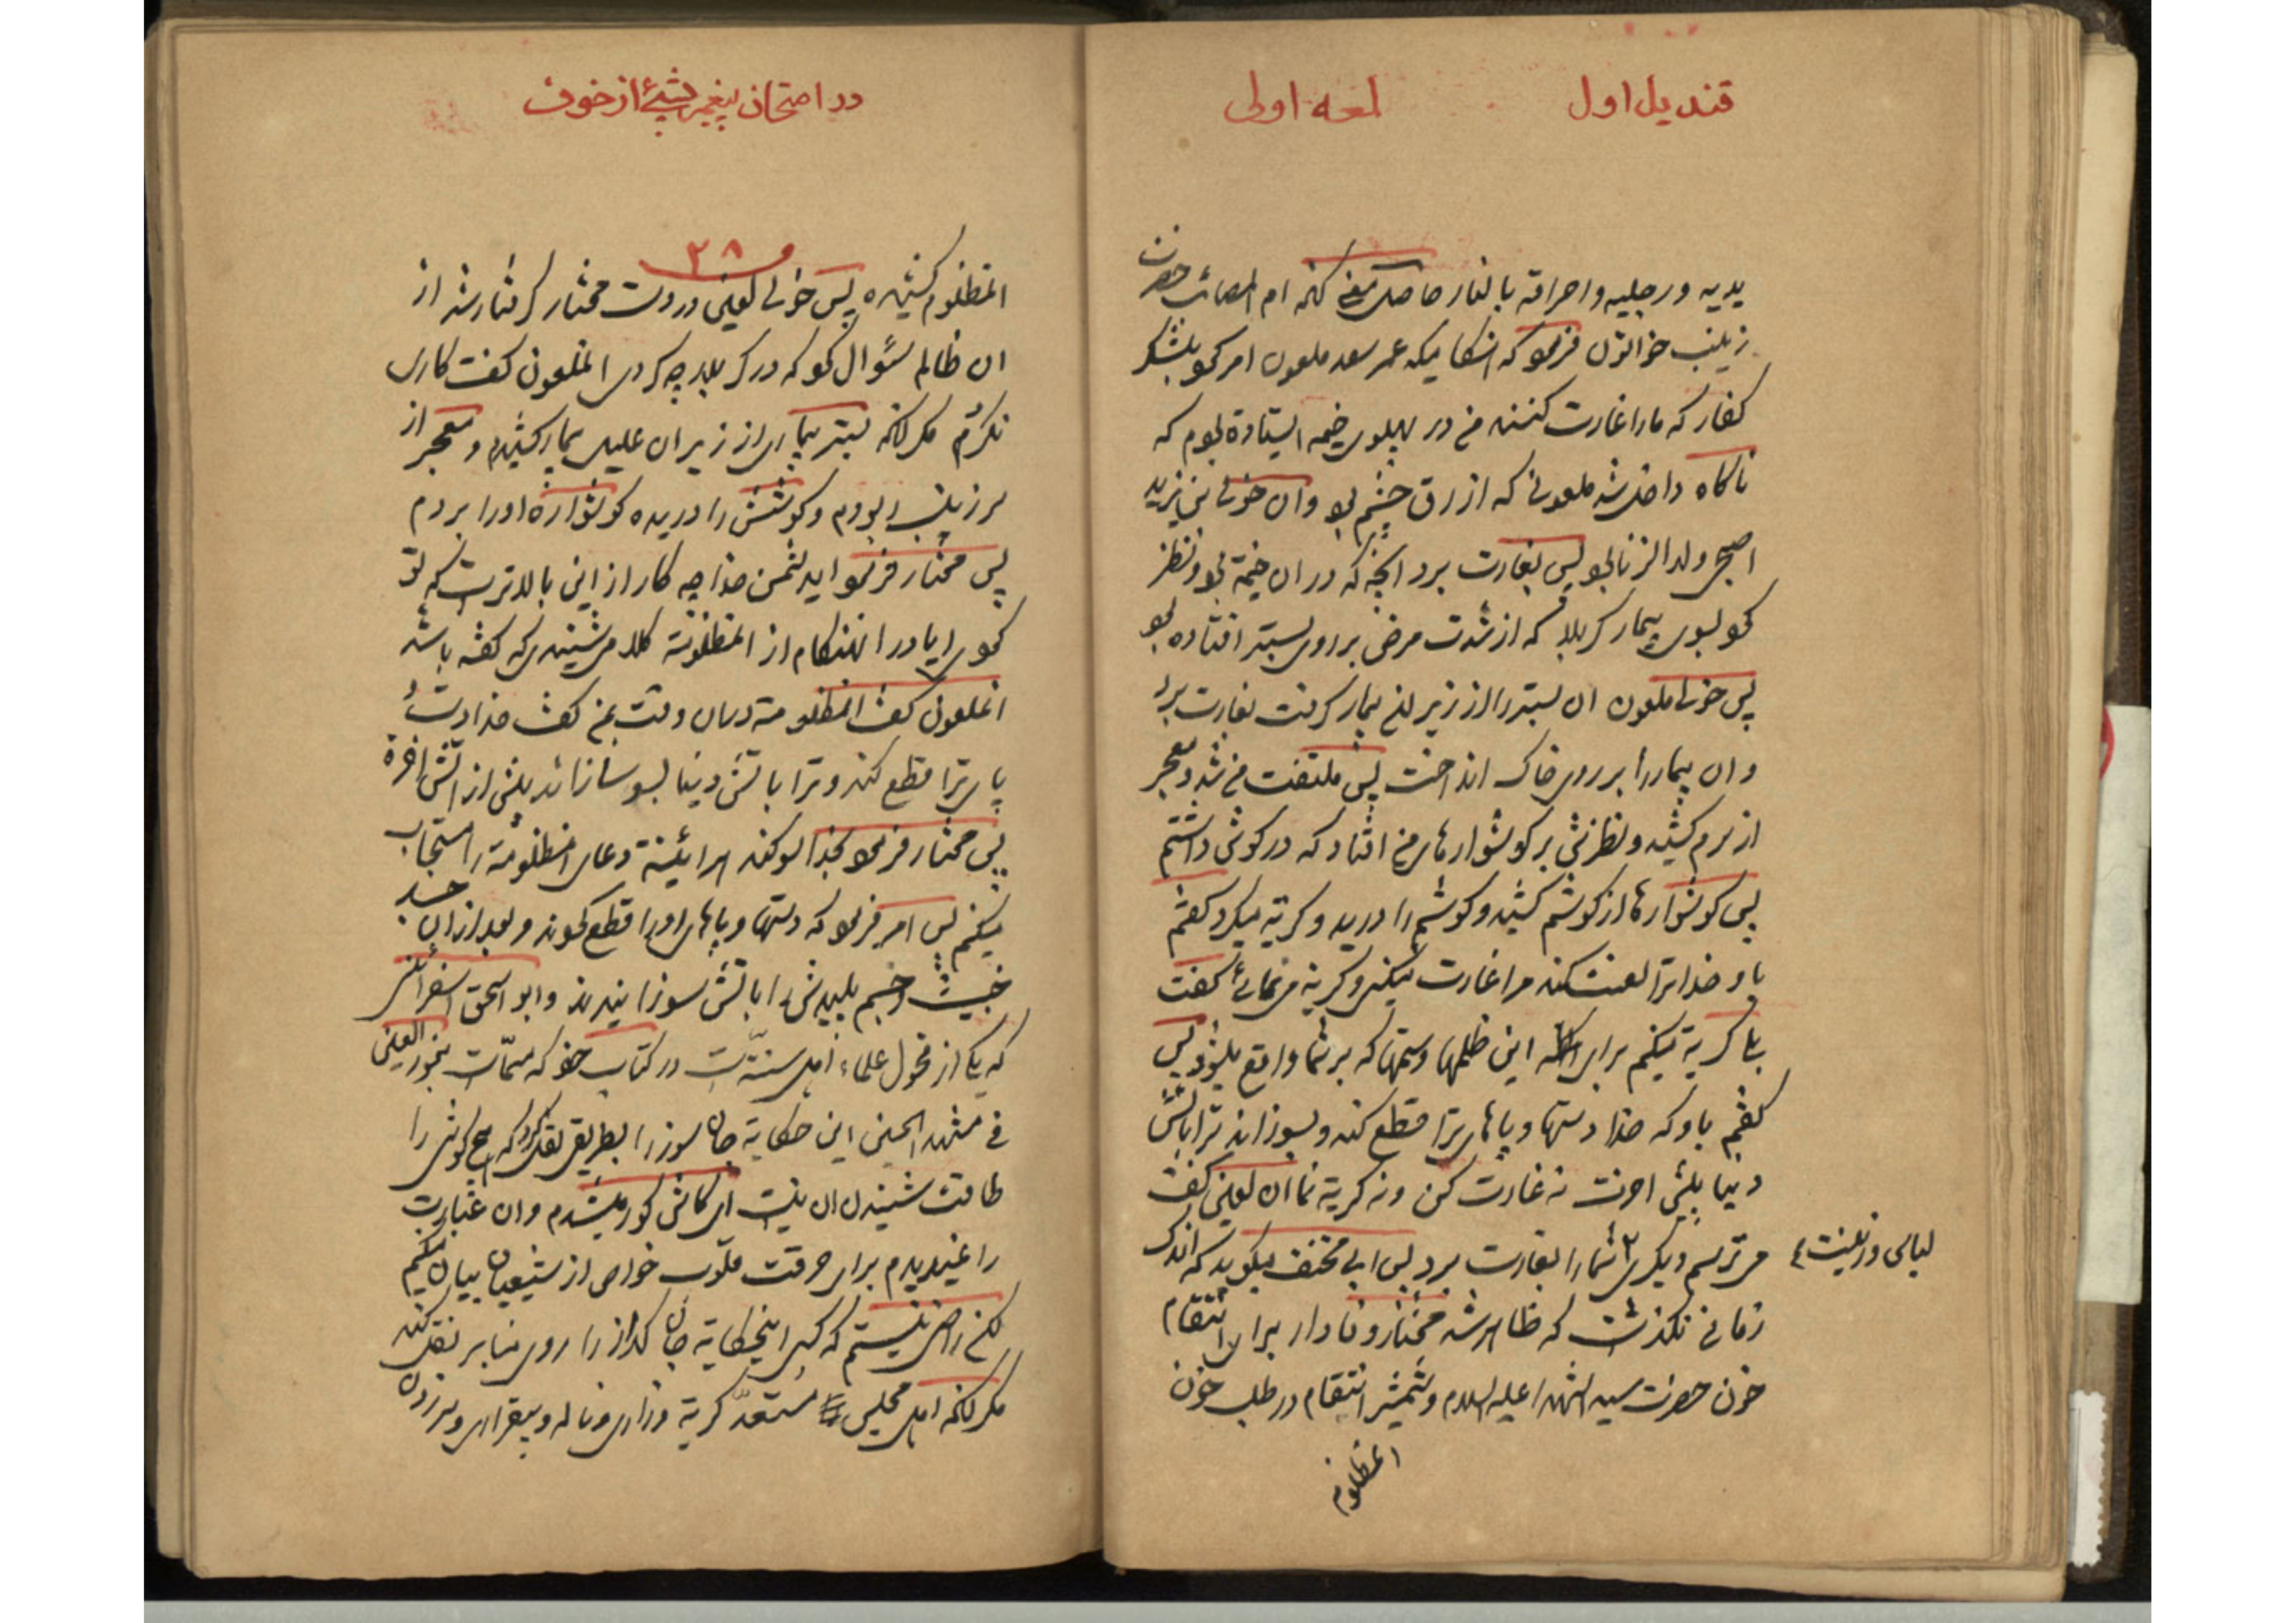 قندیل اول
لمعه اولی
یدیه ورجلیه واحراقه بالنار حاصل معنی کنه ام المصائب حضرت
زینب خواتون فرمو که انکا میکه عمر سعد ملعون امر کحو بلشکر
کفار که مارا غارت کننه من در پهلوی خیمه ایستاده بوم که
ناکاه داخل شد ملعونی که ازرق چشم بو وان خولی بن یزید
اصبحی ولد الزنا بو پس بغارت برد انچه که در ان خیمه بو ونظر
کحو بسوی بیمار کربلا که از شدت مرض بر روی بستر افتاده بو
پس خولی ملعون ان بستر را از زیر بیمار کرفت بغارت برد
وان بیمار را بر روی خاک انداخت پس ملتفت من شد ومعجر
از سرم کشید ونظرش بر کوشوارهای من افتاد که در کوش داشتم
پس کوشوارها از کوشم کشید وکوشم را درید وکریه میکرد کفتم
باو خدا ترا لعنت کند مرا غارت میکنی وکریه می نمائی کفت
بلی کریه میکنم برای انکه این ظلمها وستمها که بر شما واقع میشود پس
کفتم باو که خدا دستها وپاهای ترا قطع کند وبسوزاند ترا باتش
دنیا پیش اخرت نه غارت کن ونه کریه نما ان لعین کفت
می ترسم دیکری شما را بغارت برد پس ابی مخنف میکوید که اندک
لباس وزینت
زمانی نکذشت که ظاهر شد مختار وفادار برای انتقام
خون حضرت سید الشهدا علیه السلام وشمشیر انتقام در طلب خون
المظلوم
در امتحان پیغمبر بشیء از خوف
۲۸
المظلوم کشیده پس خولی لعین در دست مختار کرفتار شد از
ان ظالم سؤال کحو که در کربلا چه کردی الملعون کفت کاری
نکردم مکر انکه بستر بیماری از زیر ان علیل بیمار کشیدم ومعجر از
سر زینب ربودم وکوشش را دریده کوشواره اورا بردم
پس مختار فرمو ایدشمن خدا چه کار از این بالاتر است که تو
کحوی ایا در انهنکام از المظلومة کلامی شنیدی که کفته باشد
الملعون کفت المظلومة در ان وقت بمن کفت خدا دست
پای ترا قطع کند وترا باتش دنیا بسوزاند پیش از اتش اخرة
پس مختار فرمو بخدا سوکند هر ائینة دعای المظلومة را مستجاب
میکنم پس امر فرمو که دستها وپاهای اورا قطع کحوند وبعد از ان جسد
خبیث وجسم پلیدش را باتش سوزانیدند وابو اسحق اسفرائنی
که یکی از فحول علماء اهل سنت است در کتاب خو که مسمات بنور العین
فی مشهد الحسین این حکایة جان سوز را بطریقی نقل کرده که هیچ کوشی را
طاقت شنیدن ان نیست ای کاش کور میشدم وان عبارت
را نمیدیدم برای حرقت قلوب خواص از شیعیان بیان میکنم
لکن راضی نیستم که کسی اینحکایة جان کداز را روی منابر نقل کند
مکر انکه اهل مجلس مستعد کریة وزاری وناله وبیقراری وسر زدن